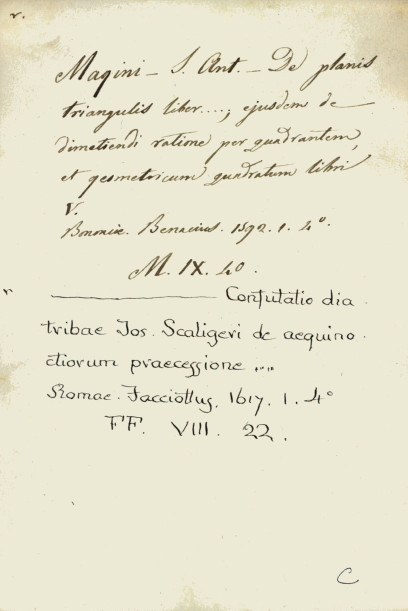 r.
Magini – J. Ant. – De planis
triangulis liber....; ejusdem de
dimetiendi ratione per quadrantem,
et geometricum quadratum libri
V.
Bononiae. Benacius. 1592. 1. 4°.
M. IX. 40.
r ———— Confutatio dia
tribae Jos. Scaligeri de aequino
ctiorum praecessione ....
Romae. Facciottus. 1617. 1. 4°
FF. VIII. 22.
C